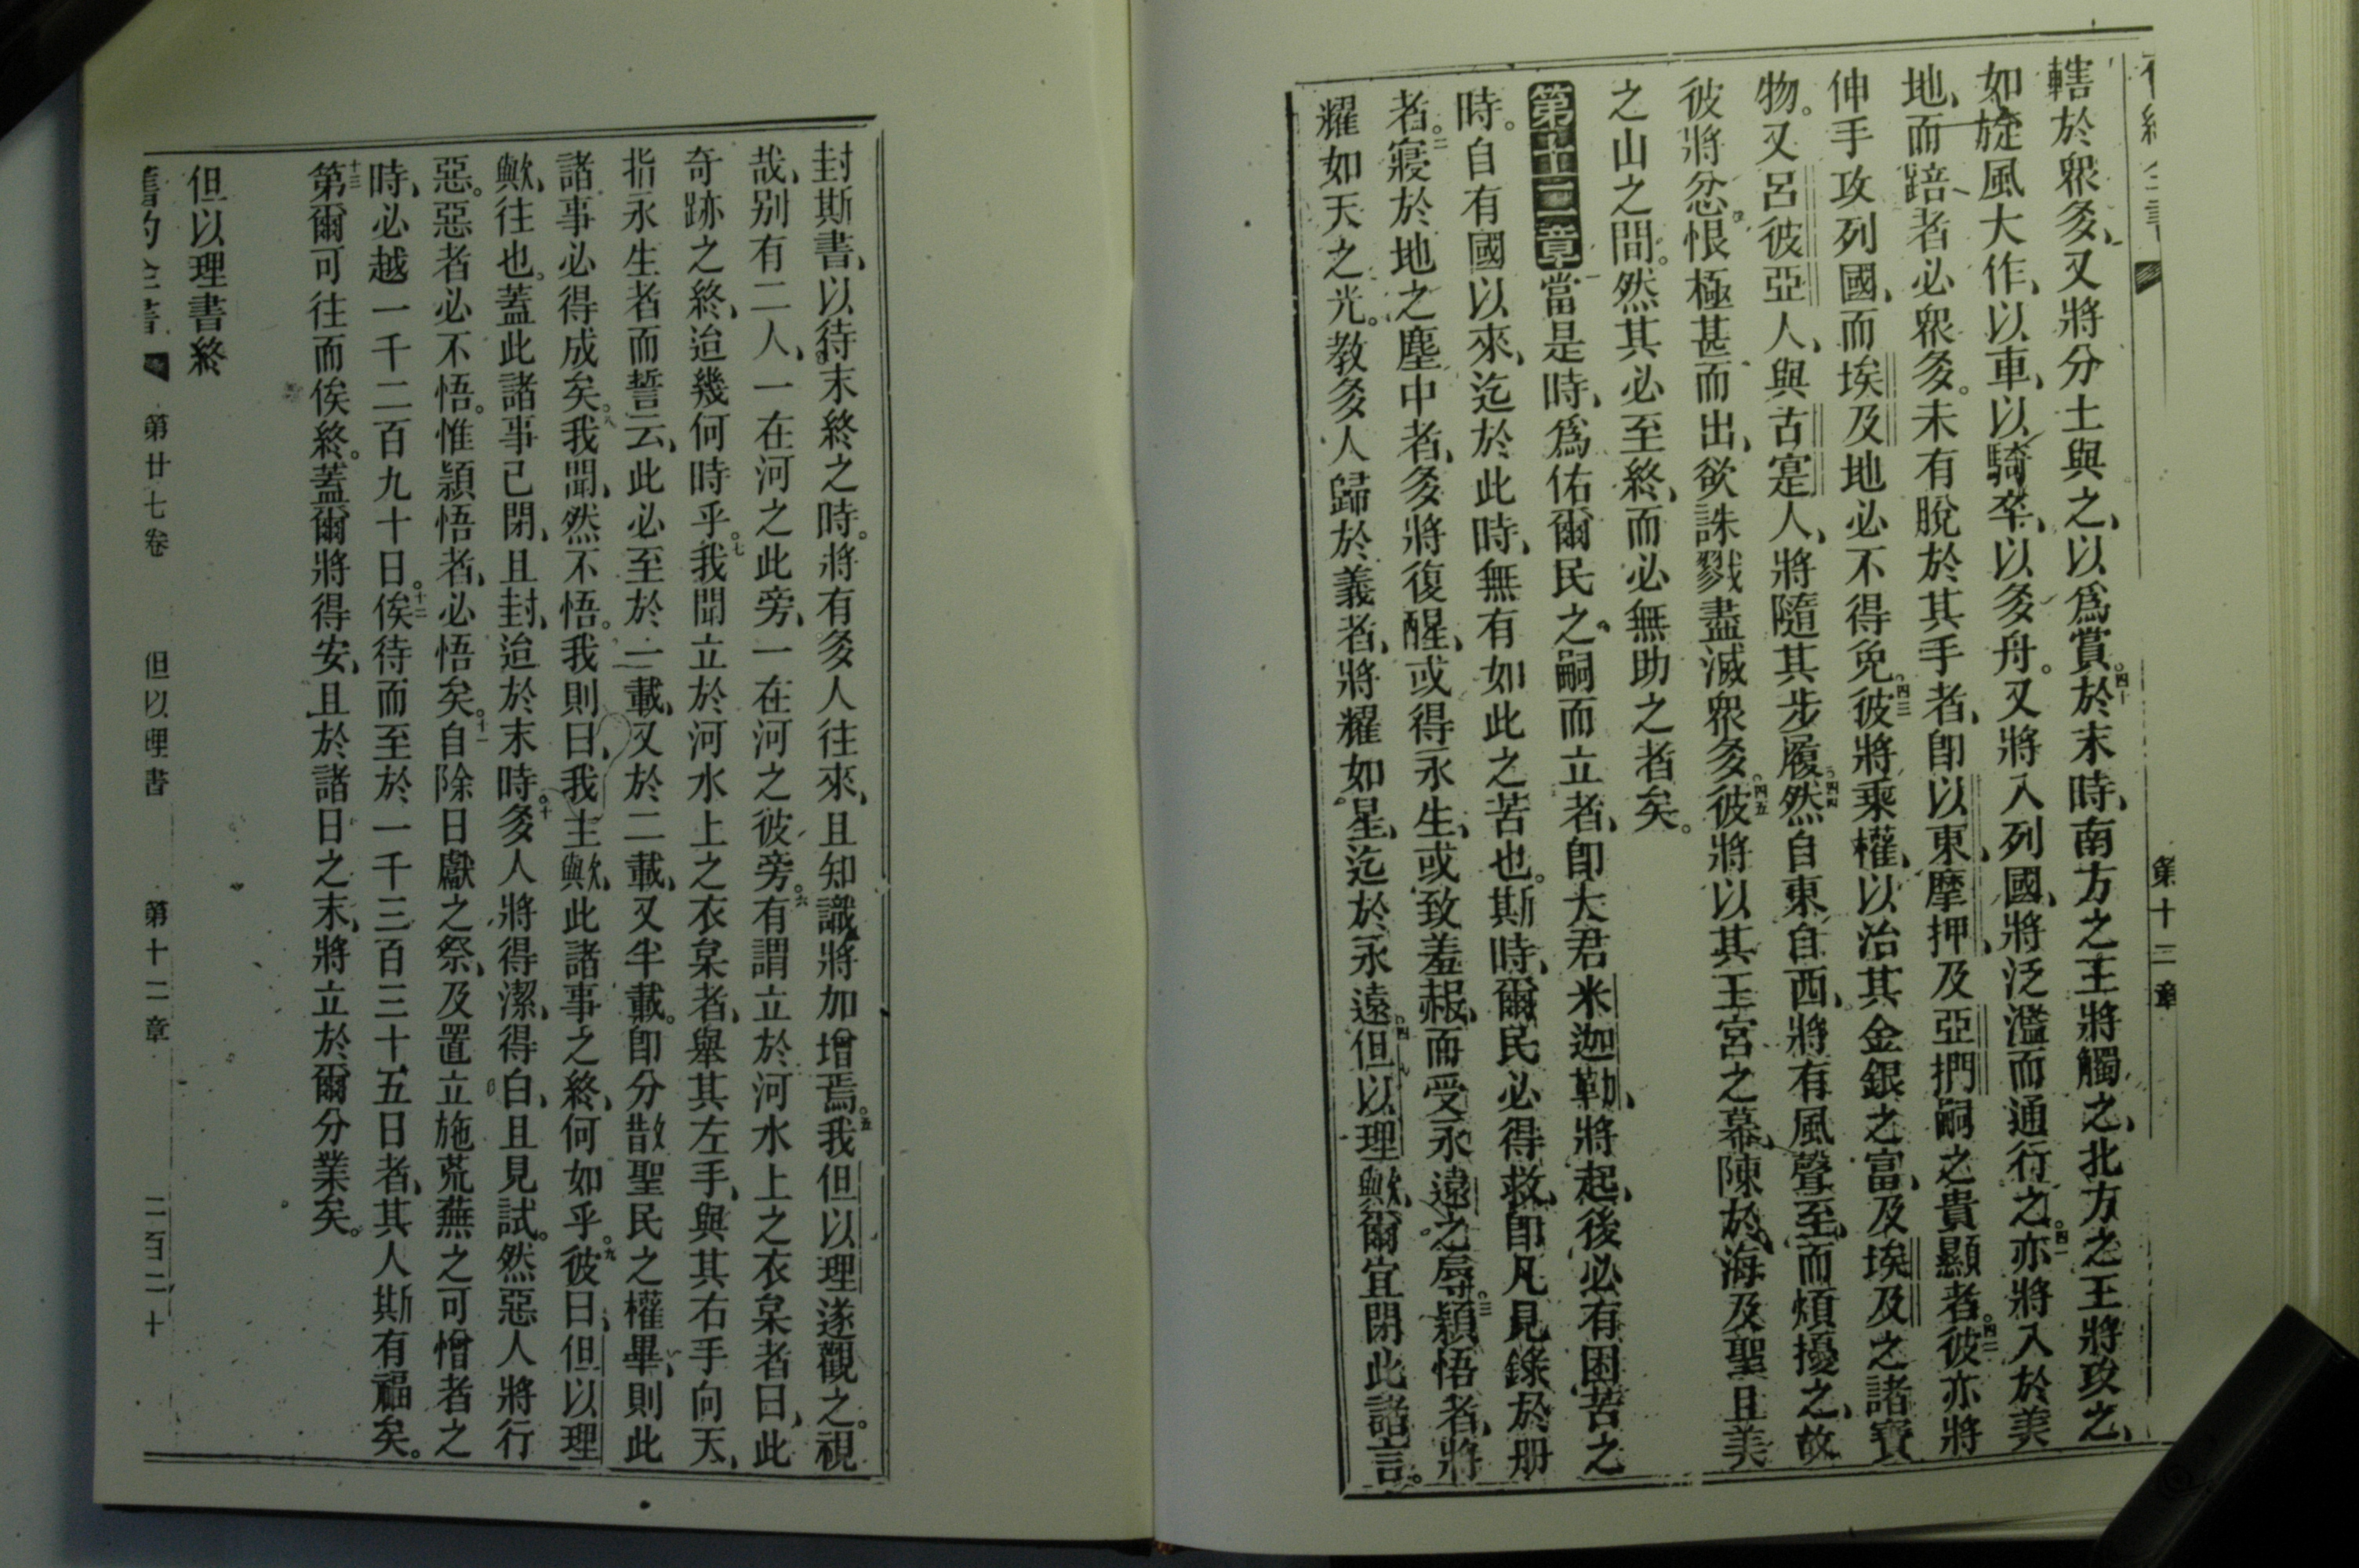 第十二章
轄於眾多、又將分土與之、以爲賞。四十於末時、南方之王將觸之、北方之王將攻之、
如旋風大作、以車、以騎卒、以多舟。又將入列國、將泛濫而通行之。四一亦將入於美
地、而踣者必眾多。未有脫於其手者、卽以東、摩押、及亞捫嗣之貴顯者。四二彼亦將
伸手攻列國、而埃及地必不得免。四三彼將乘權、以治其金銀之富、及埃及之諸寶
物。又呂彼亞人、與古寔人、將隨其步履。四四然自東、自西、將有風聲至、而煩擾之、故
彼將忿恨極甚而出、欲誅戮盡滅眾多。四五彼將以其王宮之幕、陳於海及聖且美
之山之間。然其必至終、而必無助之者矣。
第十二章當是時、爲佑爾民之嗣而立者、卽大君米迦勒、將起、後必有困苦之
時。自有國以來、迄於此時、無有如此之苦也。斯時、爾民必得救、卽凡見錄於册
者。二寢於地之塵中者、多將復醒、或得永生、或致羞赧、而受永遠之辱。三穎悟者、將
耀如天之光。教多人歸於義者、將耀如星、迄於永遠。四但以理歟、爾宜閉此諸言。
封斯書、以待末終之時。將有多人往來、且知識將加增焉。五我但以理遂觀之。視
哉、别有二人、一在河之此旁、一在河之彼旁。六有謂立於河水上之衣枲者曰、此
奇跡之終、迨幾何時乎。七我聞立於河水上之衣枲者、舉其左手、與其右手向天、
指永生者而誓云、此必至於一載、又於二載、又半載。卽分散聖民之權畢、則此
諸事必得成矣。八我聞、然不悟。我則曰、我主歟、此諸事之終、何如乎。九彼曰、但以理
歟、往也。蓋此諸事已閉、且封、迨於末時。十多人將得潔、得白、且見試。然惡人將行
惡。惡者必不悟。惟穎悟者、必悟矣。十一自除日獻之祭、及置立施荒蕪之可憎者之
時、必越一千二百九十日。十二俟待而至於一千三百三十五日者、其人斯有福矣。
十三第爾可往而俟終。蓋爾將得安、且於諸日之末、將立於爾分業矣。
但以理書終
第廿七卷 但以理書 第十二章 二百二十